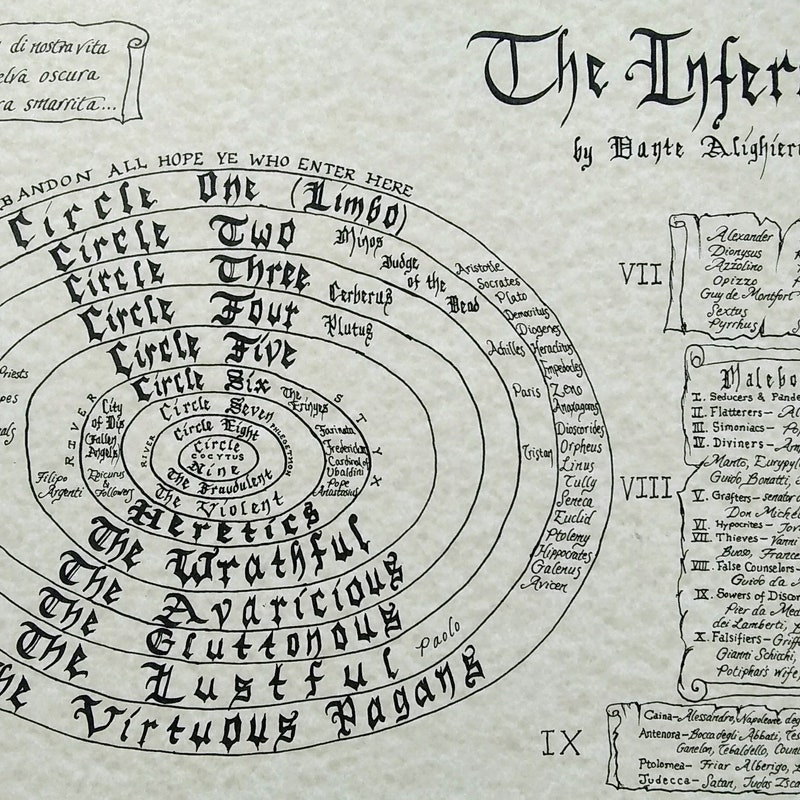 di nostra vita
oscura
smarrita...
The
by Dante
ABANDON ALL HOPE YE WHO ENTER HERE
Circle One (Limbo)
Circle Two
Minos
Judge of the Dead
Circle Three
Cerberus
Circle Four
Plutus
Circle Five
Circle Six
The Erinyes
Circle Seven
Circle Eight
Circle
COCYTUS
Nine
The Fraudulent
The Violent
Heretics
The Wrathful
The Avaricious
The Gluttonous
The Lustful
Paolo
Virtuous Pagans
RIVER
STYX
RIVER
PHLEGETHON
City
of Dis
Fallen
Angels
Epicurus
&
Followers
Filipo
Argenti
Farinata
Cardinal of
Ubaldini
Pope
Anastasius
Aristotle
Socrates
Plato
Democritus
Diogenes
Heraclitus
Empedocles
Zeno
Anaxagoras
Dioscorides
Orpheus
Linus
Tully
Seneca
Euclid
Ptolemy
Hippocrates
Galenus
Avicen
Achilles
Paris
Tristan
VII
Alexander
Dionysus
Azzolino
Opizzo
Guy de Montfort
Sextus
Pyrrhus
VIII
I. Seducers &
II. Flatterers-
III. Simoniacs-
IV. Diviners-
Manto,
Guido Bonatti,
V. Grafters- senator
Don
VI. Hypocrites-
VII. Thieves- Vanni
Buoso,
VIII. False Counselors-
Guido da
IX. Sowers of
Pier da
dei Lamberti,
X. Falsifiers-
Gianni Schicchi,
Potiphar's Wife,
IX
Caina- Alessandro, Napoleone
Antenora- Bocca degli Abbati,
Ganelon, Tebaldello,
Ptolomea- Friar Alberigo,
Judecca- Satan, Judas